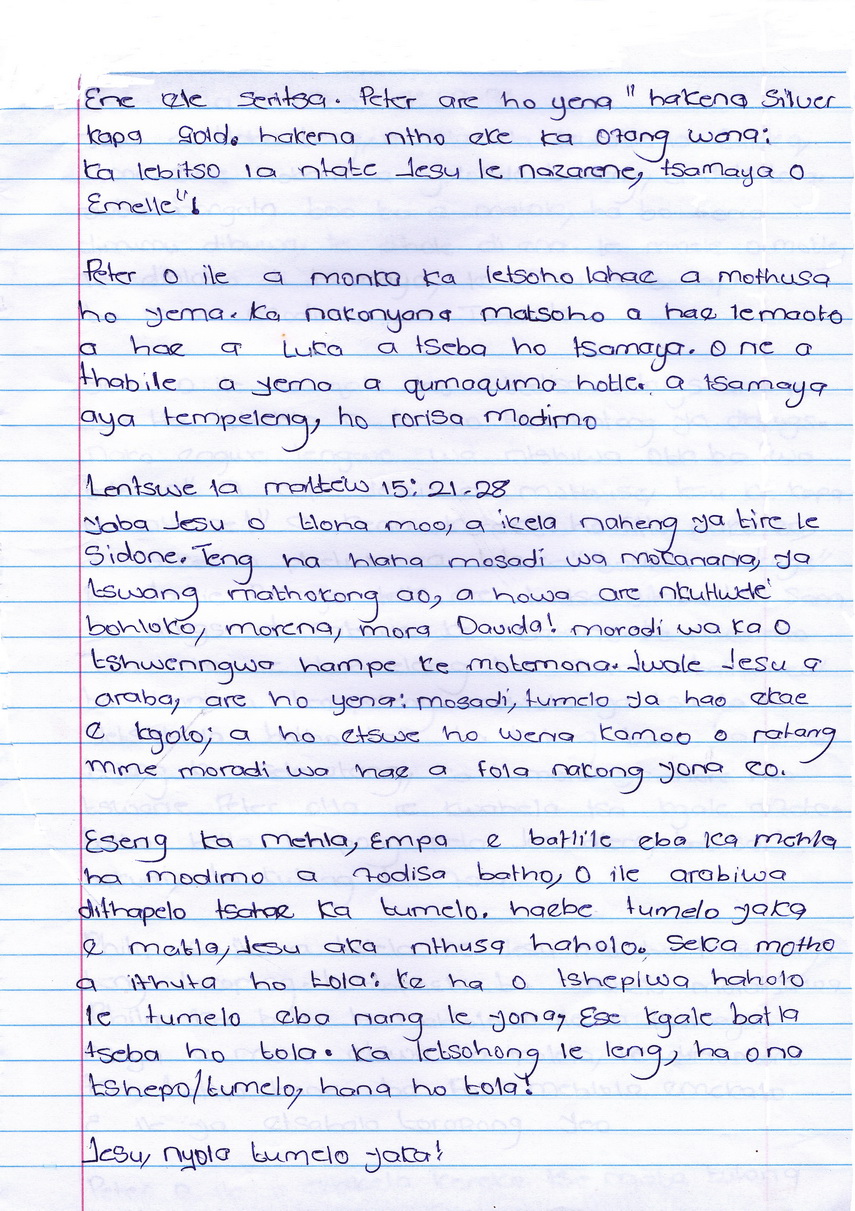 Ene ele seritsa. Peter are ho yena " hakena Silver
kapa Gold. hakena ntho eke ka otang wona:
ka lebitso la ntate Jesu le nazarene, tsamaya o
Emelle"!
Peter o ile a monka ka letsoho lahae a mothusa
ho yema. Ka nakonyana matsoho a hae lemaoto
a hae a Luka a tseba ho tsamaya. O ne a
thabile a yema a qumaquma hotle. a tsamaya
aya tempeleng, ho rorisa modimo
Lentswe la mattew 15: 21-28
yaba Jesu o tloha moo, a ikela naheng ya tire le
Sidone. Teng ha hlaha mosadi wa mokanana, ya
tswang mathokong ao, a howa are nkutlwele
bohloko, morena, mora Davida! moradi wa ka o
tshwenngwa hampe ke motemona. Jwale Jesu a
araba, are ho yena: mosadi, tumelo ya hao ekae
e kgolo; a ho etswe ho wena kamoo o ratang
mme moradi wa hae a fola nakong yona eo.
Eseng ka mehla, Empa e batlile eba ka mehla
ha modimo a fodisa batho, o ile arabiwa
dithapelo tsahae ka tumelo. haebe tumelo yaka
e matla, Jesu aka nthusa haholo. Seka motho
a ithuta ho tola: ke ha o tshepiwa haholo
le tumelo eba nang le yona, Ese kgale batla
tseba ho tola. ka letsohong le leng, ha ona
tshepo/tumelo, hana ho tola!
Jesu, nyola tumelo yaka!